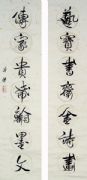 藝寶書齋金詩畫
傳家貴翰墨文